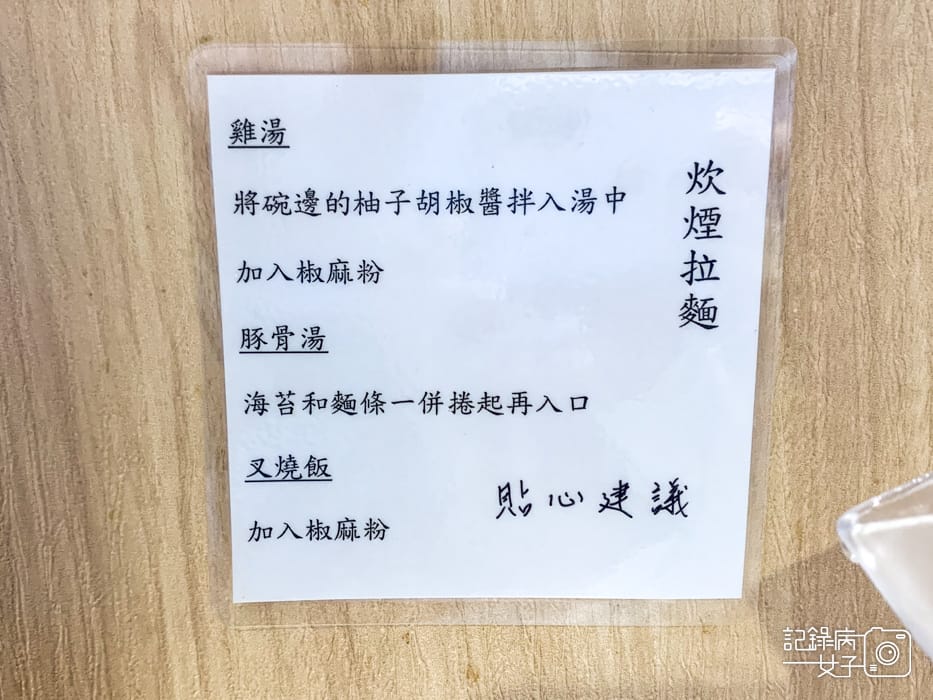 炊煙拉麵
雞湯
將碗邊的柚子胡椒醬拌入湯中
加入椒麻粉
豚骨湯
海苔和麵條一併捲起再入口
叉燒飯
加入椒麻粉
貼心建議
記錄病
女子